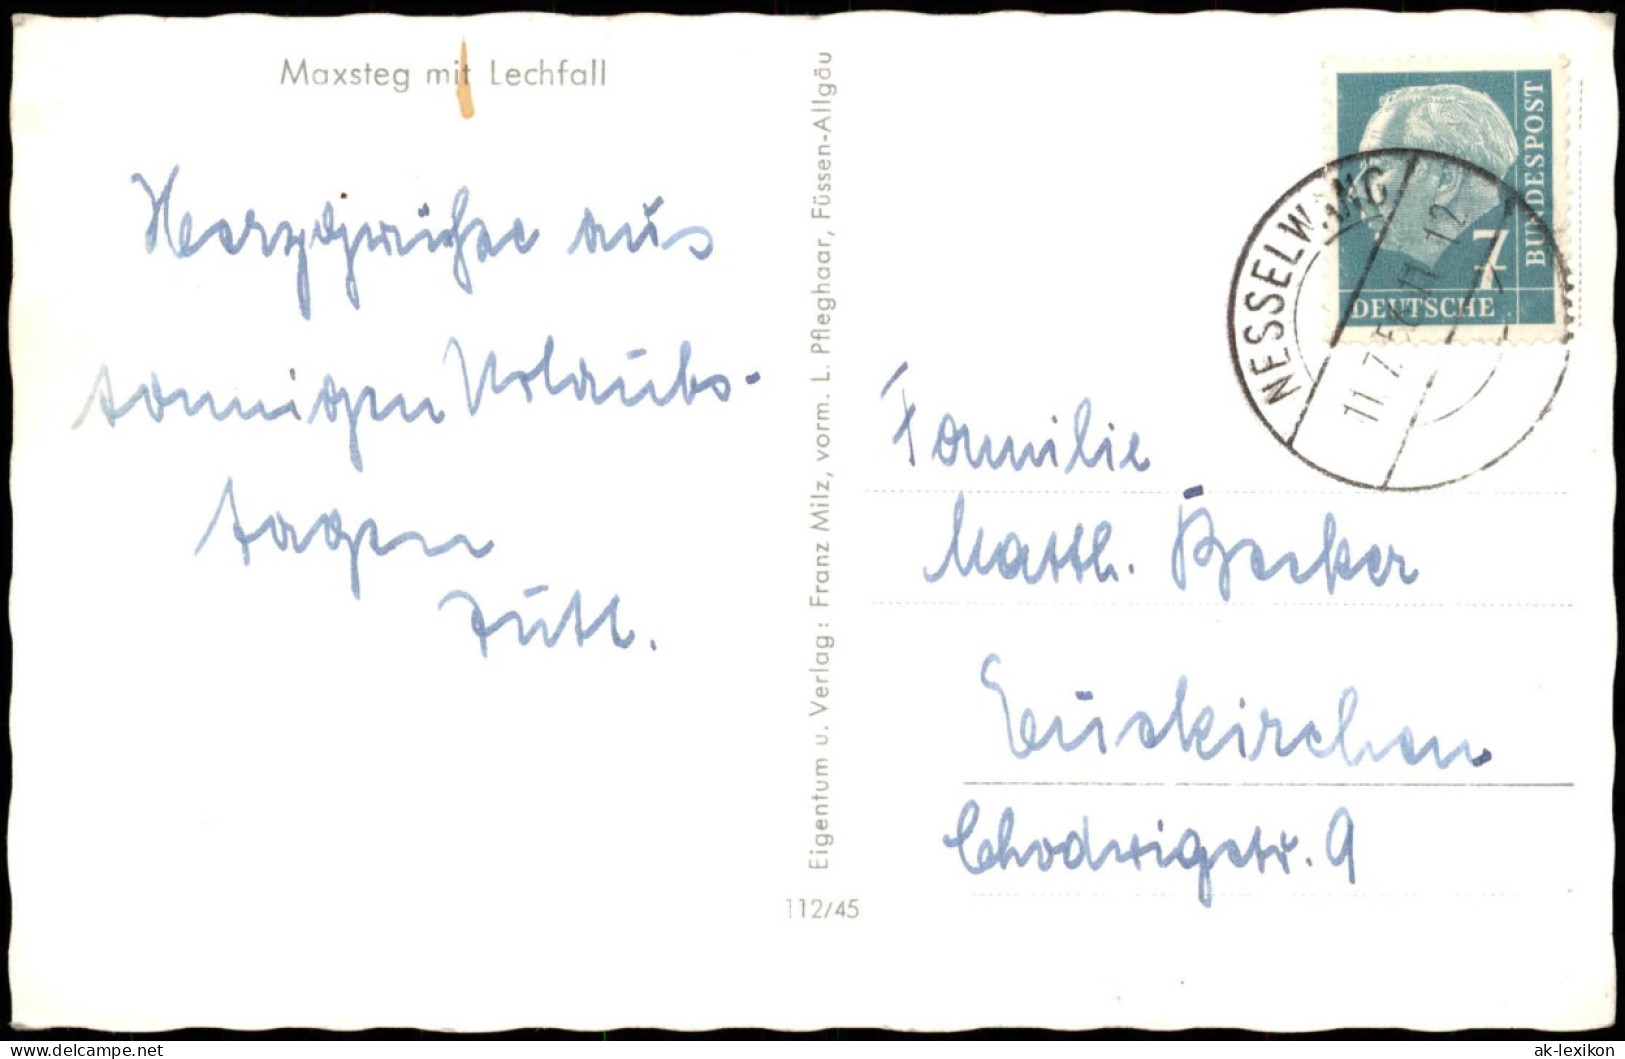 Maxsteg mit Lechfall
Herzl. Grüsse aus
sonnigen Urlaubs-
tagen
Eigentum u. Verlag: Franz Milz, vorm. L. Pfleghaar, Füssen-Allgäu
112/45
BUNDESPOST
7
DEUTSCHE
NESSELWANG
11.7.56-11 12
Familie
Matth. Becker
Euskirchen
Chlodwigstr. 9
ak-lexikon